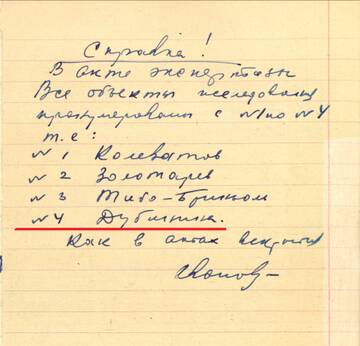 Справка!
В акте экспертизы
Все объекты исследования
пронумерованы с №1 по №4
т.е:
№1 Колеватов
№2 Золотарев
№3 Тибо-Бриньом
№4 Дубинина.
Как в актах вскрытия